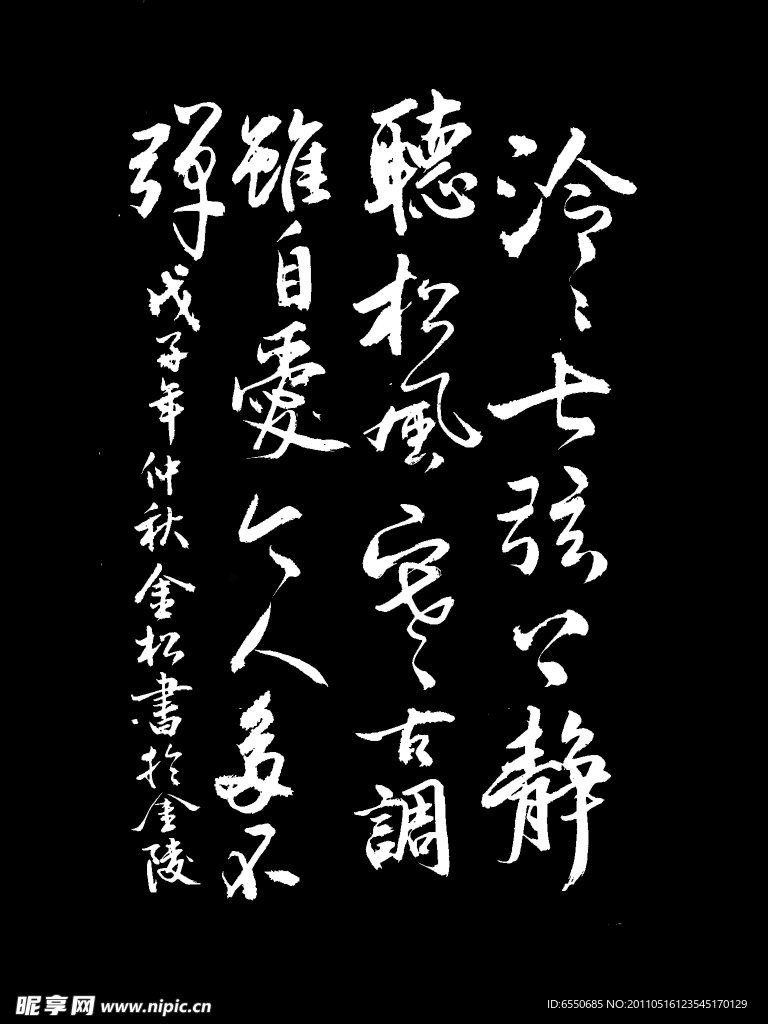 泠〻七弦上静
聽松風寒〻古調
雖自愛今人多不
彈戊子年仲秋金松書於金陵
昵享网 www.nipic.cn
ID:6550685 NO:20110516123545170129